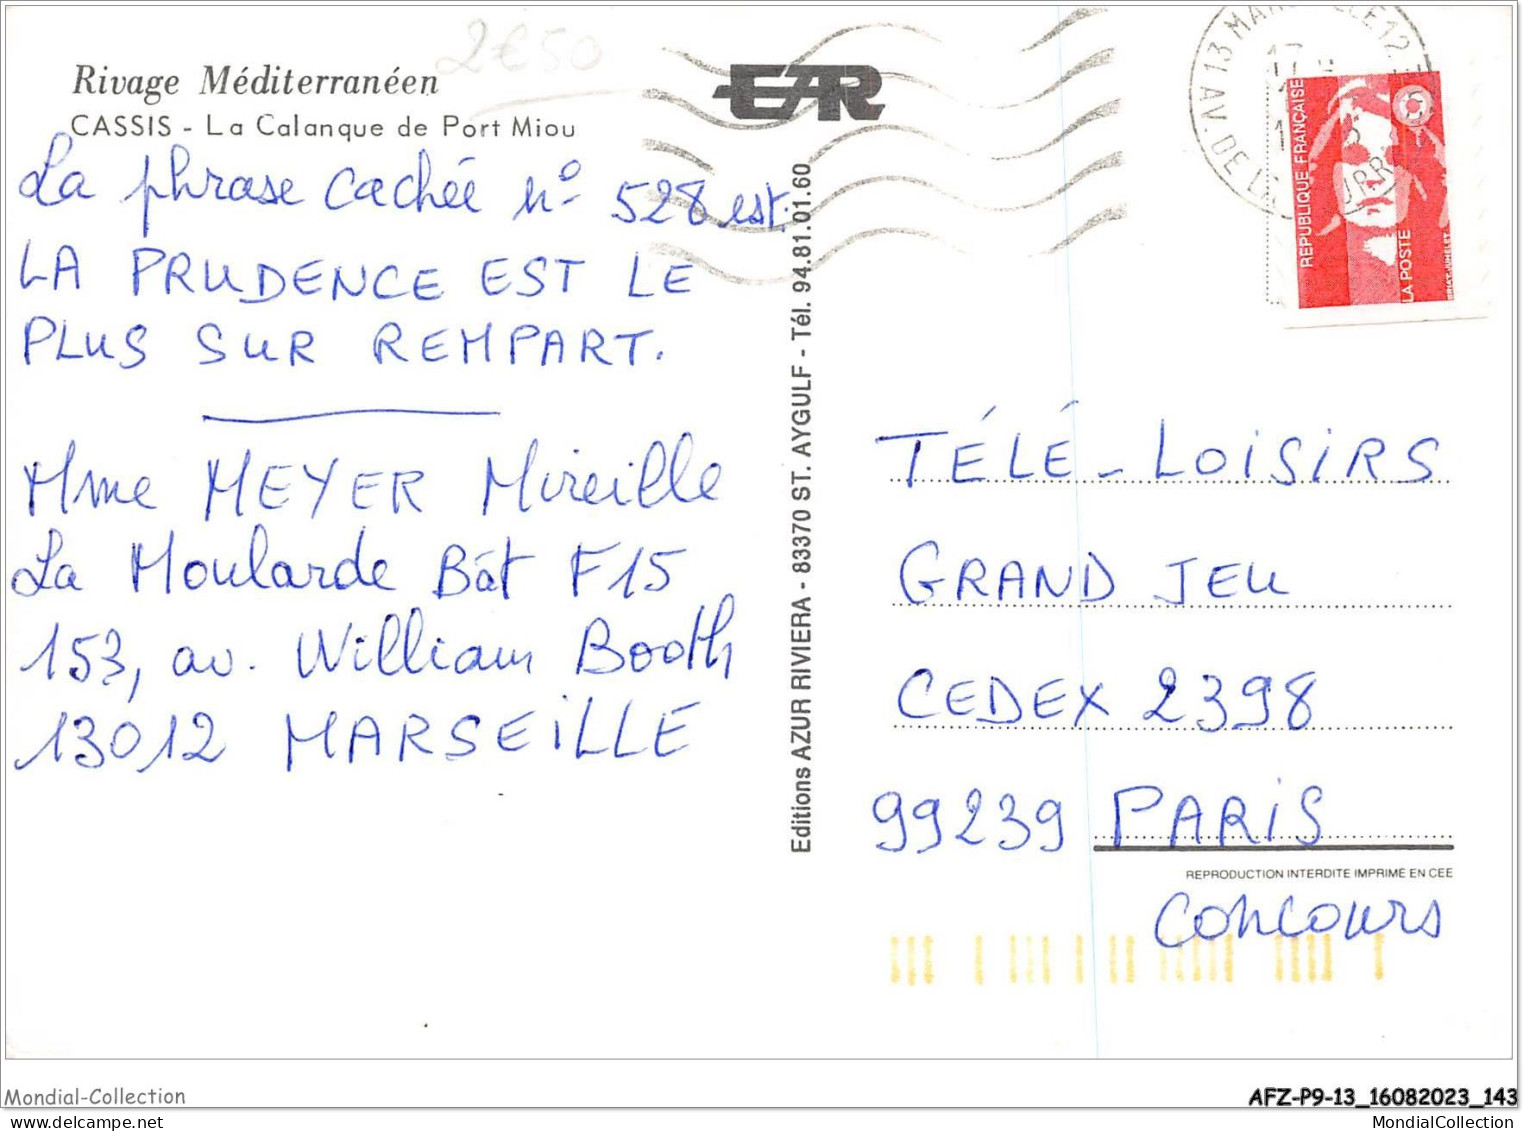 2€50
Rivage Méditerranéen
CASSIS - La Calanque de Port Miou
EAR
La phrase cachée n° 528 est:
LA PRUDENCE EST LE
PLUS SUR REMPART.
Mme MEYER Mireille
La Moularde Bât F15
153, av. William Booth
13012 MARSEILLE
Editions AZUR RIVIERA - 83370 ST. AYGULF - Tél. 94.81.01.60
REPUBLIQUE FRANÇAISE
LA POSTE
TÉLÉ-LOISIRS
GRAND JEU
CEDEX 2398
99239 PARIS
REPRODUCTION INTERDITE IMPRIMÉ EN CEE
Concours
Mondial-Collection
AFZ-P9-13_16082023_143
MondialCollection